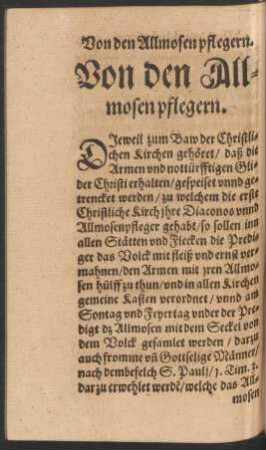 Von den Allmosen pflegern.
Von den All-
mosen pflegern.
DJeweil zum Baw der Christli-
chen Kirchen gehöret/ daß die
Armen vnd nottürfftigen Gli-
der Christi erhalten/ gespeiset vnnd ge-
trencket werden/ zu welchem die erste
Christliche Kirch jhre Diaconos vnnd
Allmosenpfleger gehabt/ so sollen inn
allen Stätten vnd Flecken die Predi-
ger das Volck mit fleiß vnd ernst ver-
mahnen/ den Armen mit jren Allmo-
sen hülff zu thun/ vnd in allen Kirchen
gemeine Kasten verordnet/ vnnd am
Sontag vnd Feyertag vnder der Pre-
digt dz Allmosen mit dem Seckel von
dem Volck gesamlet werden/ darzu
auch fromme vñ Gottselige Männer/
nach dem befelch S. Pauli/ 1. Tim. 3.
darzu erwehlet werdē/ welche das All-
mosen